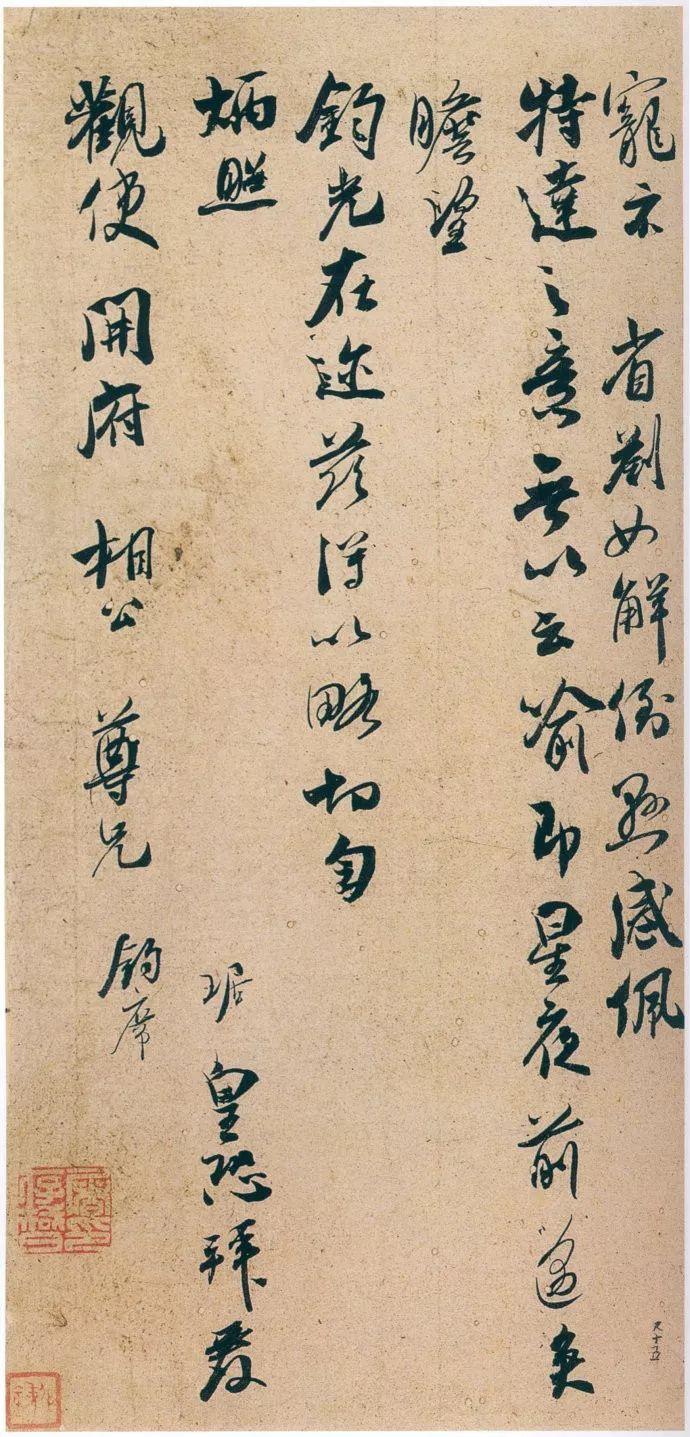 寵示 省劄如解倒懸感佩
特達之意無以云喻即星夜前邁矣
瞻望
鈞光在邇茲得以略切匄
炳照 琚皇恐拜覆
觀使 開府 相公 尊兄 鈞席
十五